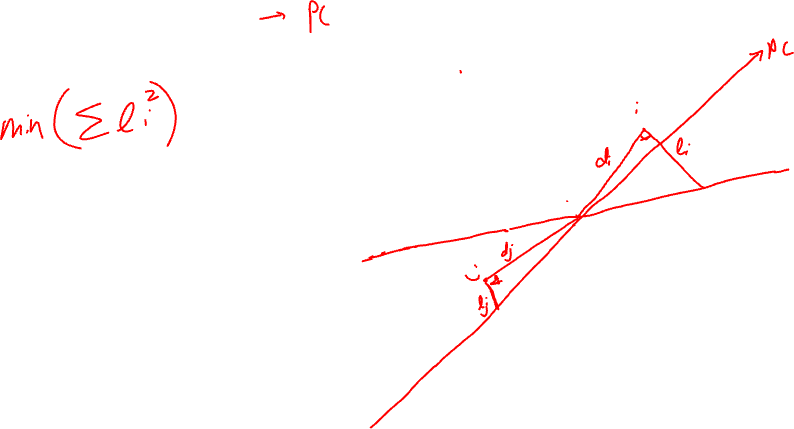 → PC
min(Σ lᵢ²)
PC
i
dᵢ
lᵢ
dj
j
lj